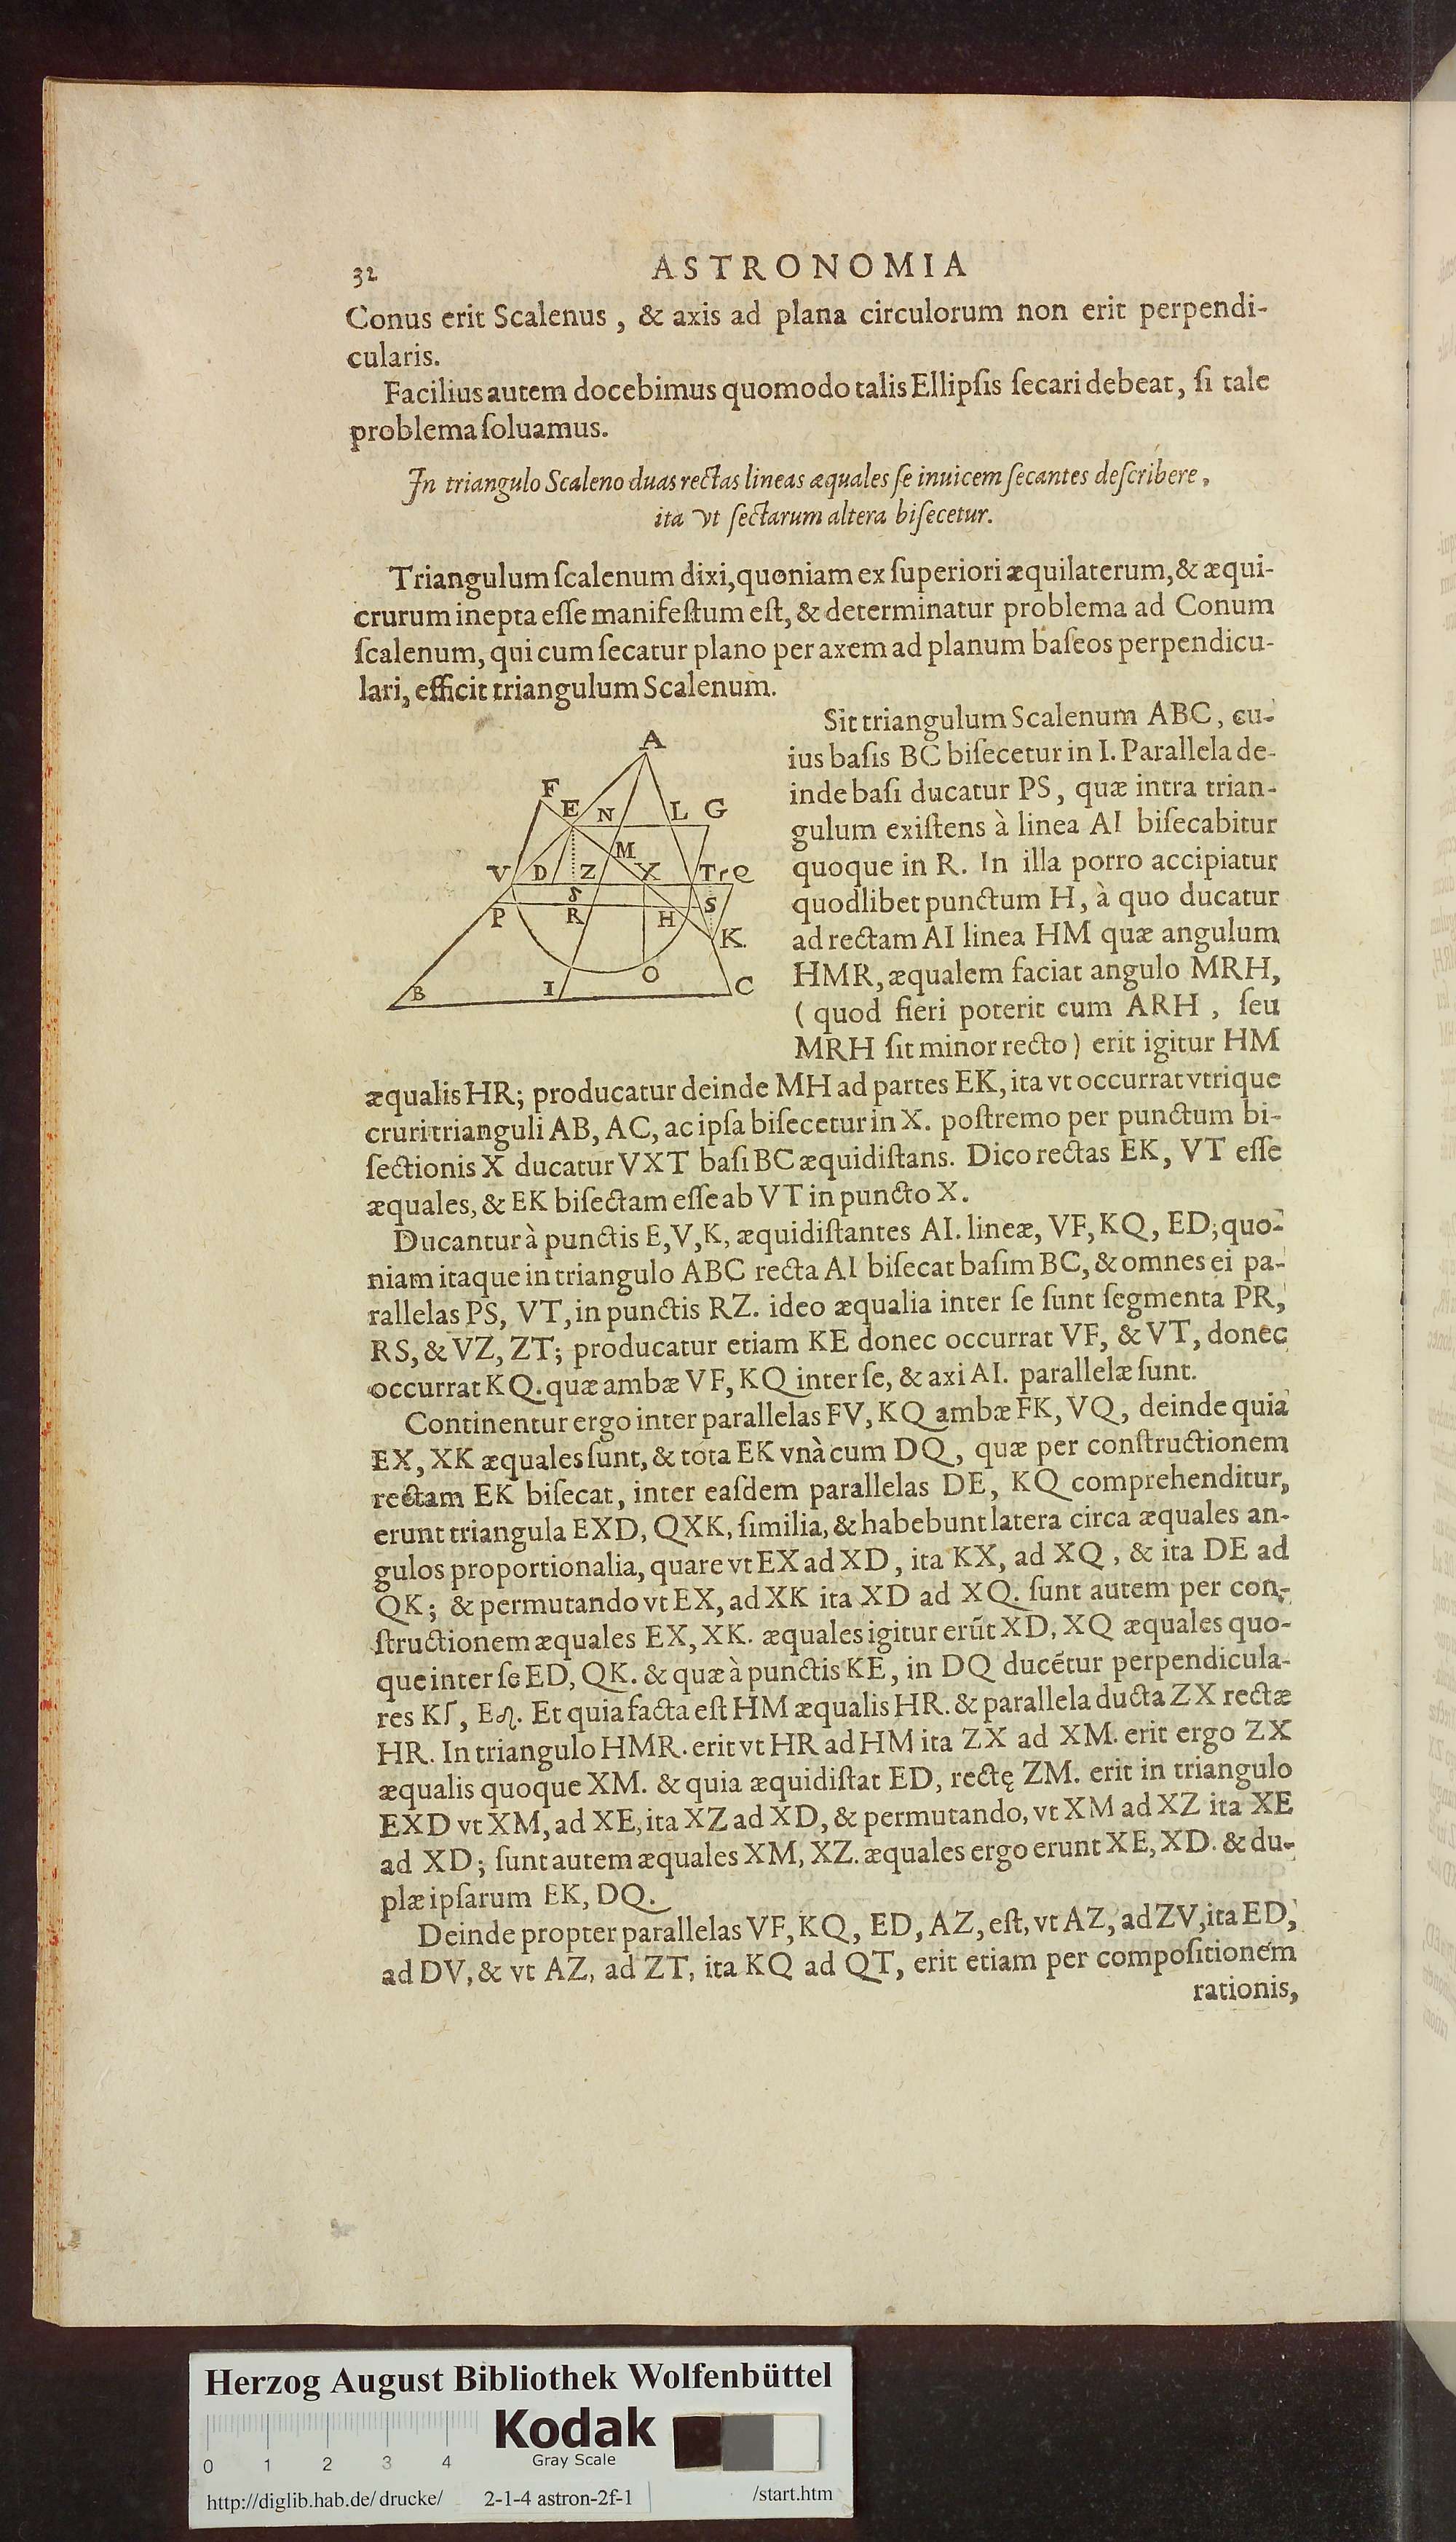 32 ASTRONOMIA
Conus erit Scalenus, & axis ad plana circulorum non erit perpendi-
cularis.
Facilius autem docebimus quomodo talis Ellipſis ſecari debeat, ſi tale
problema ſoluamus.
In triangulo Scaleno duas rectas lineas æquales ſe inuicem ſecantes deſcribere,
ita vt ſectarum altera biſecetur.
Triangulum ſcalenum dixi, quoniam ex ſuperiori æquilaterum, & æqui-
crurum inepta eſſe manifeſtum eſt, & determinatur problema ad Conum
ſcalenum, qui cum ſecatur plano per axem ad planum baſeos perpendicu-
lari, efficit triangulum Scalenum.
A
F
E N L G
M
V D Z X T r Q
δ
P R H S
K
B I O C
Sit triangulum Scalenum ABC, cu-
ius baſis BC biſecetur in I. Parallela de-
inde baſi ducatur PS, quæ intra trian-
gulum exiſtens à linea AI biſecabitur
quoque in R. In illa porro accipiatur
quodlibet punctum H, à quo ducatur
ad rectam AI linea HM quæ angulum
HMR, æqualem faciat angulo MRH,
(quod fieri poterit cum ARH, ſeu
MRH ſit minor recto) erit igitur HM
æqualis HR; producatur deinde MH ad partes EK, ita vt occurrat vtrique
cruri trianguli AB, AC, ac ipſa biſecetur in X. poſtremo per punctum bi-
ſectionis X ducatur VXT baſi BC æquidiſtans. Dico rectas EK, VT eſſe
æquales, & EK biſectam eſſe ab VT in puncto X.
Ducantur à punctis E, V, K, æquidiſtantes AI. lineæ, VF, KQ, ED; quo-
niam itaque in triangulo ABC recta AI biſecat baſim BC, & omnes ei pa-
rallelas PS, VT, in punctis RZ. ideo æqualia inter ſe ſunt ſegmenta PR,
RS, & VZ, ZT; producatur etiam KE donec occurrat VF, & VT, donec
occurrat KQ. quæ ambæ VF, KQ inter ſe, & axi AI. parallelæ ſunt.
Continentur ergo inter parallelas FV, KQ ambæ FK, VQ, deinde quia
EX, XK æquales ſunt, & tota EK vnà cum DQ, quæ per conſtructionem
rectam EK biſecat, inter eaſdem parallelas DE, KQ comprehenditur,
erunt triangula EXD, QXK, ſimilia, & habebunt latera circa æquales an-
gulos proportionalia, quare vt EX ad XD, ita KX, ad XQ, & ita DE ad
QK; & permutando vt EX, ad XK ita XD ad XQ. ſunt autem per con-
ſtructionem æquales EX, XK. æquales igitur erūt XD, XQ æquales quo-
que inter ſe ED, QK. & quæ à punctis KE, in DQ ducētur perpendicula-
res Kſ, E. Et quia facta eſt HM æqualis HR. & parallela ducta ZX rectæ
HR. In triangulo HMR. erit vt HR ad HM ita ZX ad XM. erit ergo ZX
æqualis quoque XM. & quia æquidiſtat ED, rectę ZM. erit in triangulo
EXD vt XM, ad XE, ita XZ ad XD, & permutando, vt XM ad XZ ita XE
ad XD; ſunt autem æquales XM, XZ. æquales ergo erunt XE, XD. & du-
plæ ipſarum EK, DQ.
Deinde propter parallelas VF, KQ, ED, AZ, eſt, vt AZ, ad ZV, ita ED,
ad DV, & vt AZ, ad ZT, ita KQ ad QT, erit etiam per compoſitionem
rationis,
Herzog August Bibliothek Wolfenbüttel
Kodak
Gray Scale
0 1 2 3 4
http://diglib.hab.de/drucke/ 2-1-4 astron-2f-1 /start.htm